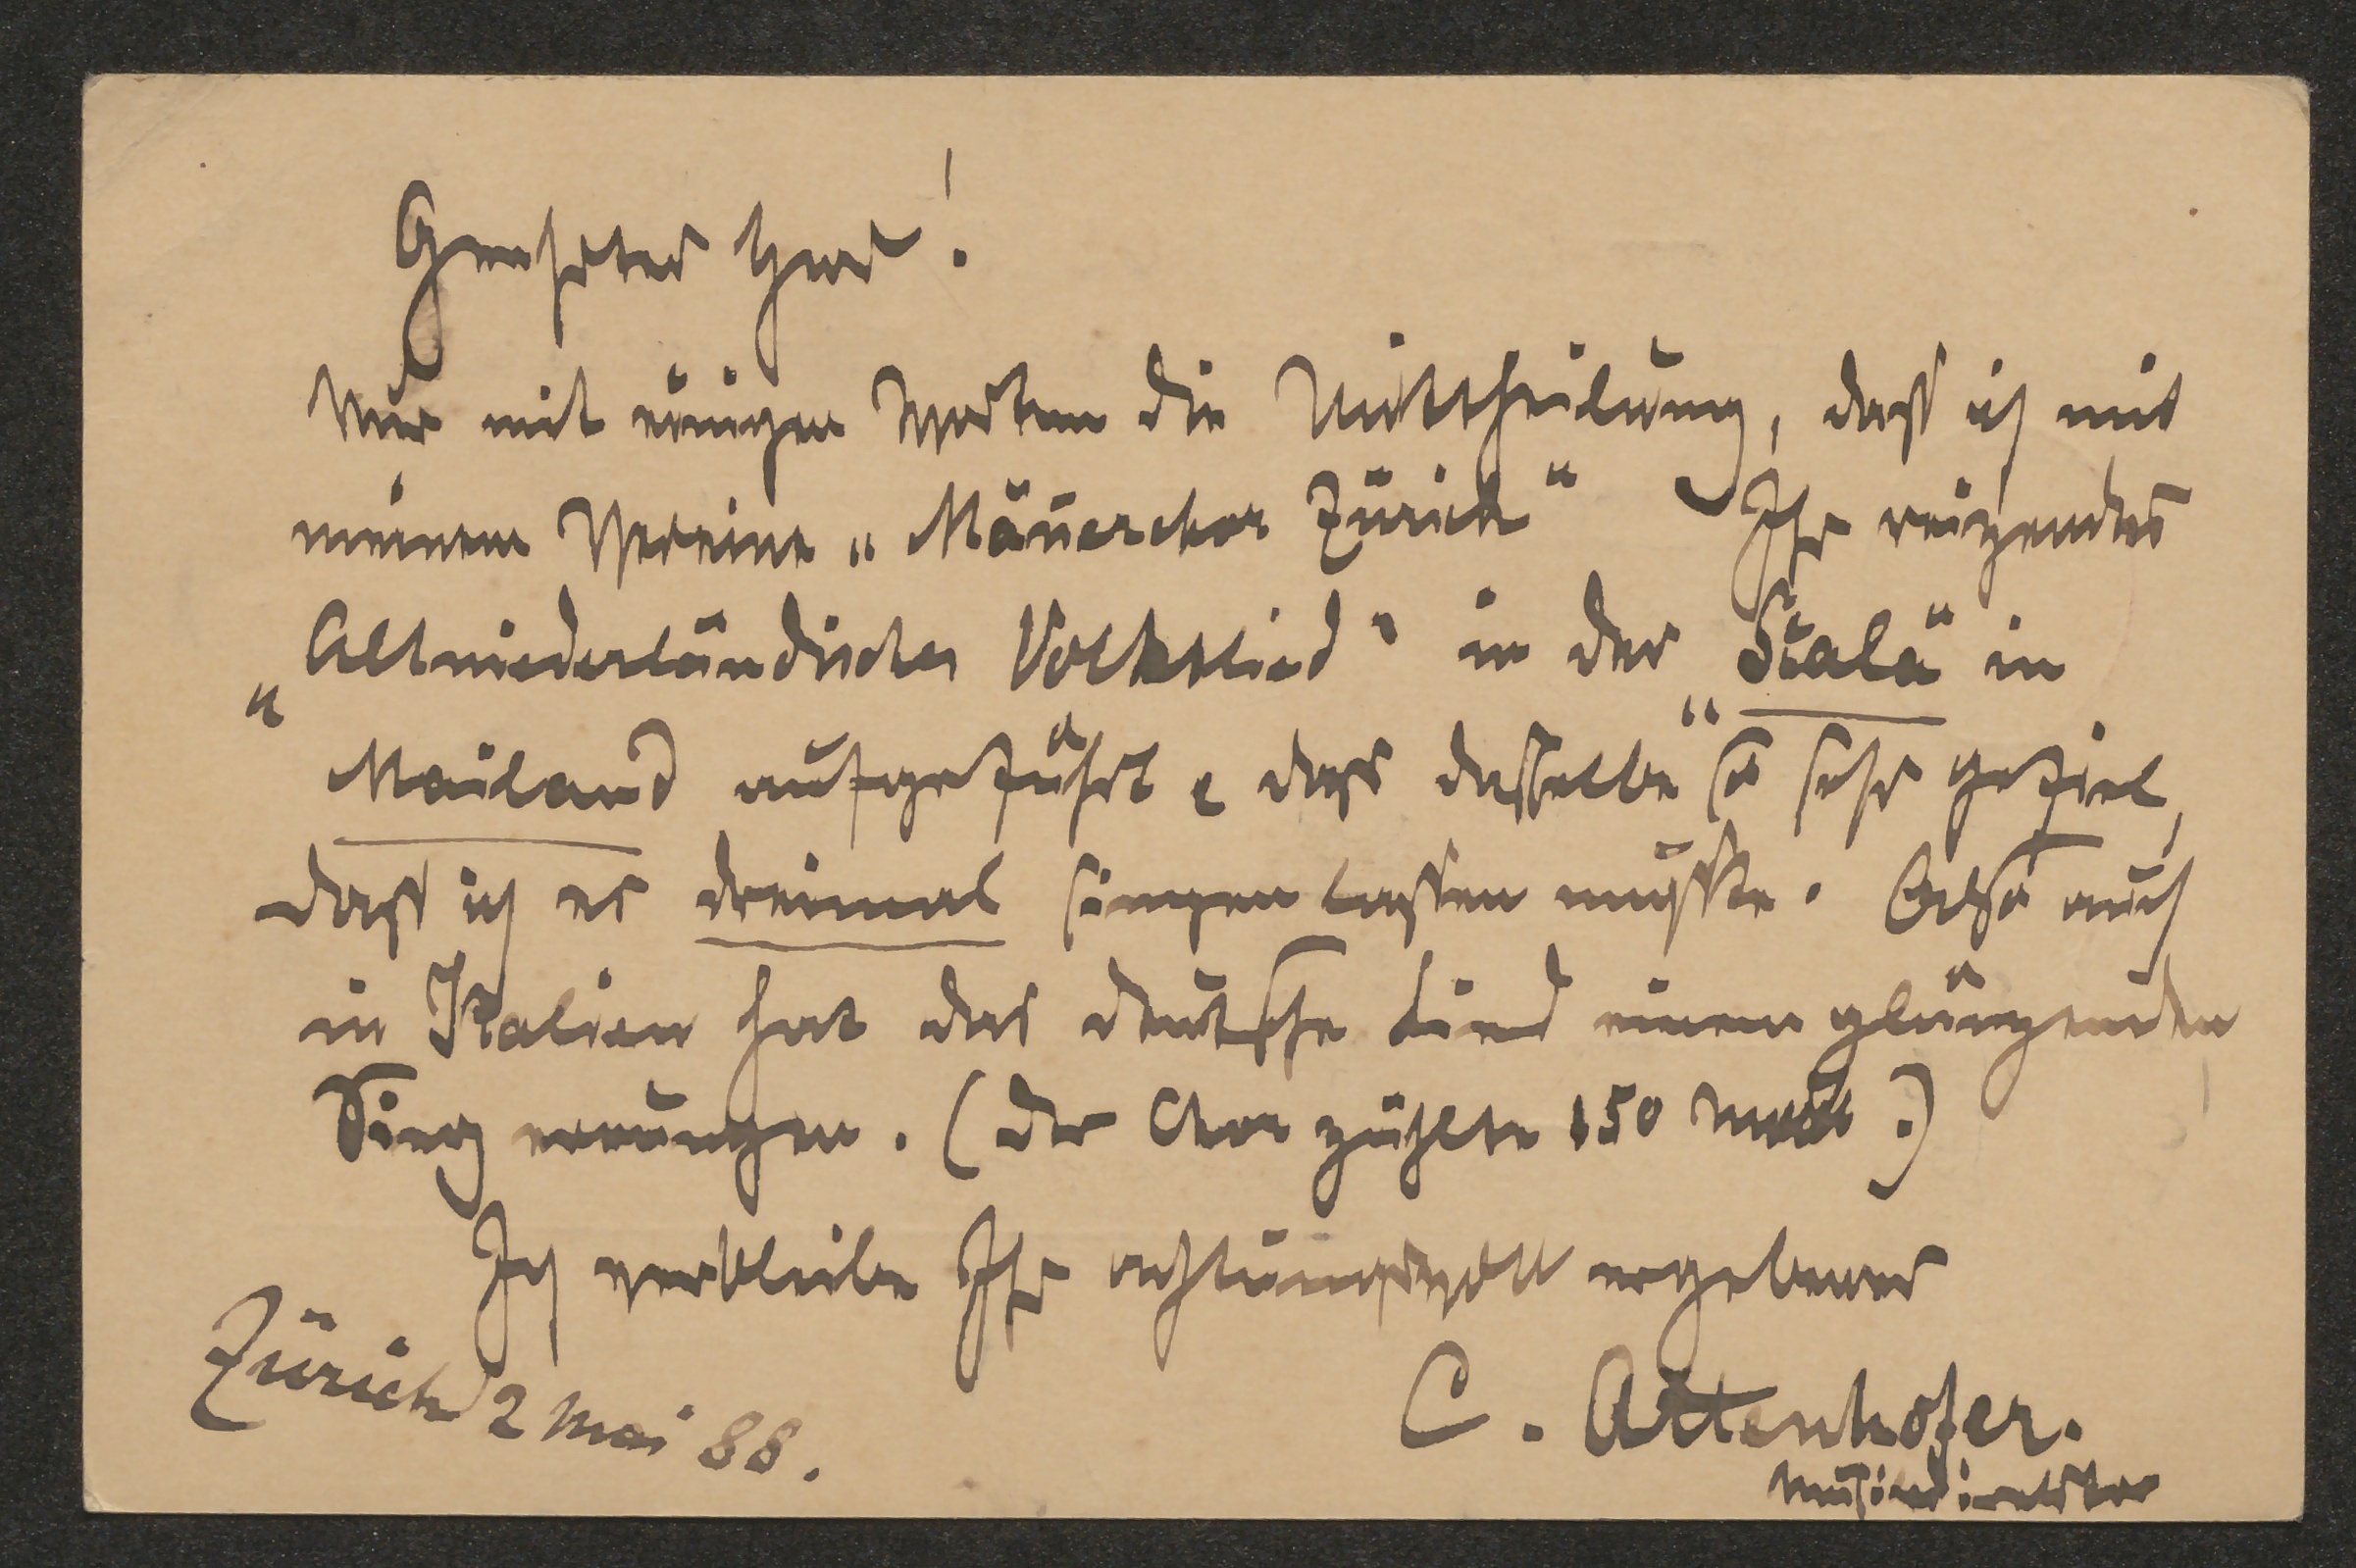 Geehrter Herr!
Nur mit einigen Worten die Mittheilung, daß ich mit
meinem Vereine „Männerchor Zürich“ Ihr reizendes
„Altniederländisches Volkslied“ in der „Scala“ in
Mailand aufgeführt & dass dasselbe so sehr gefiel,
daß ich es dreimal singen lassen mußte. Also auch
in Italien hat das deutsche Lied einen glänzenden
Sieg errungen. (Der Chor zählte 150 Mann.)
Ich verbleibe Ihr achtungsvoll ergebener
C. Attenhofer.
Musikdirektor
Zürich 2 Mai 88.